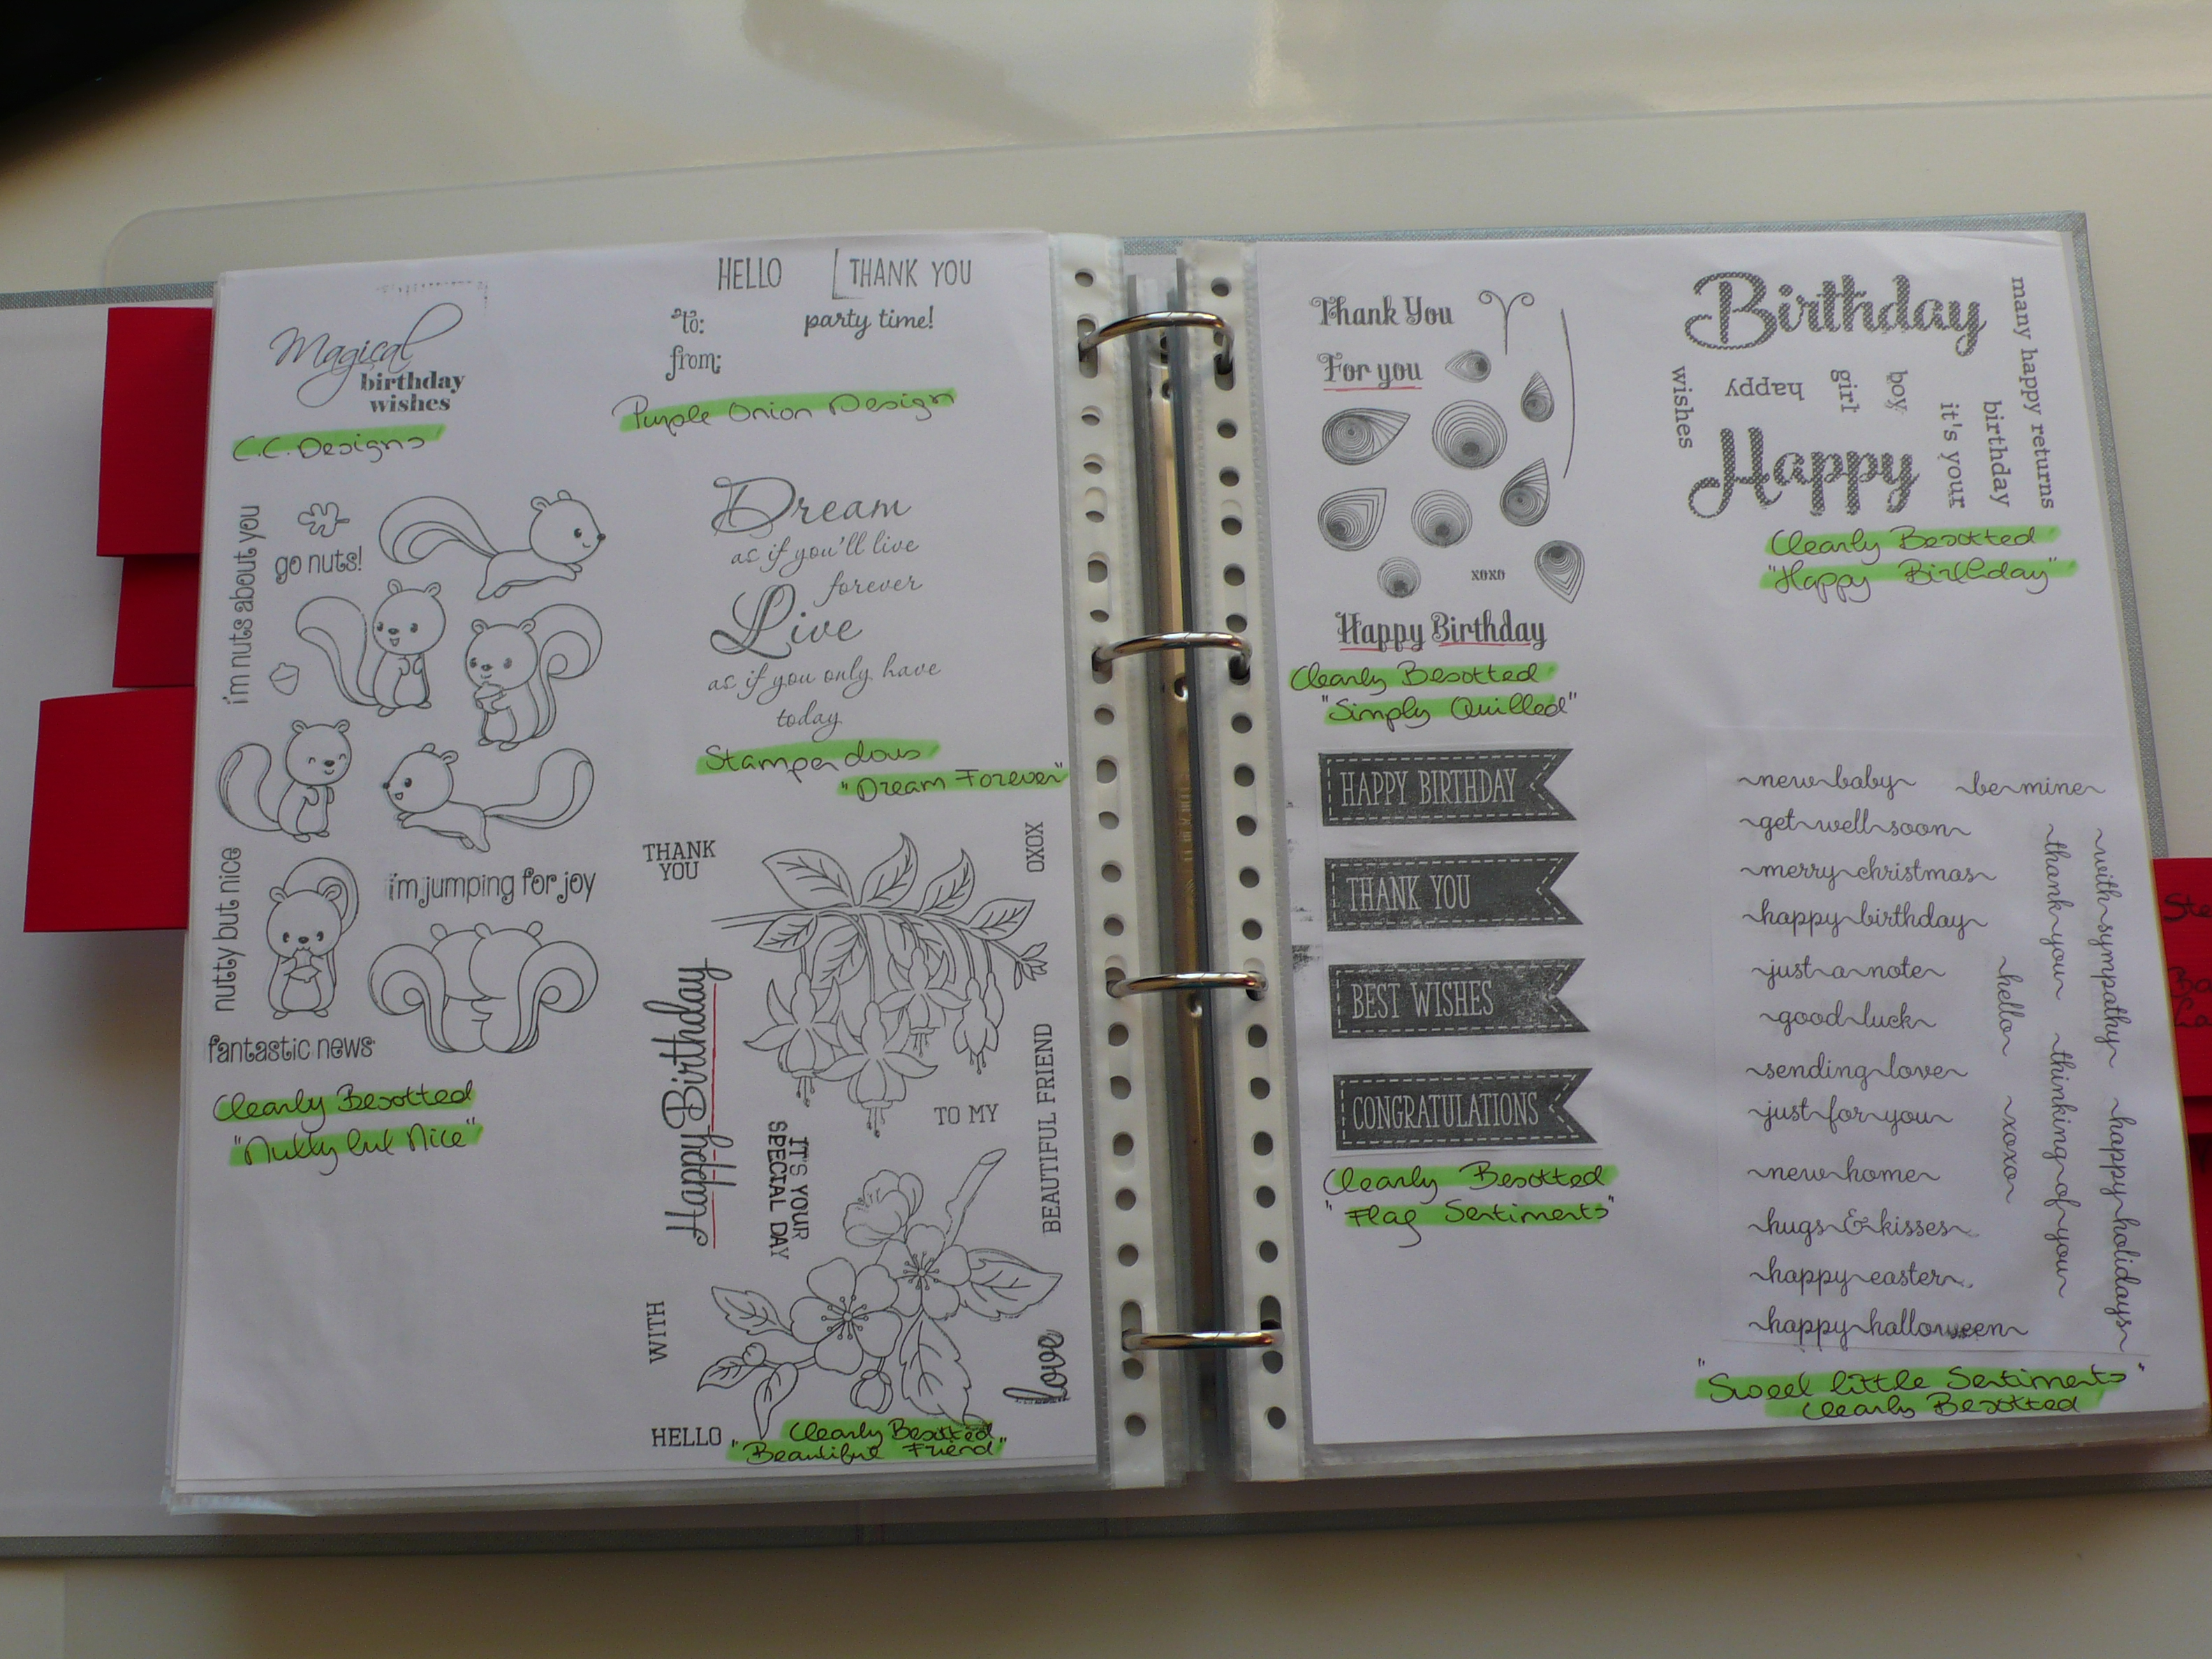 Magical
birthday
wishes
C.C. Designs
HELLO
THANK YOU
to:
party time!
from:
Purple Onion Design
i'm nuts about you
go nuts!
nutty but nice
i'm jumping for joy
fantastic news
Clearly Besotted
"Nutty but Nice"
Dream
as if you'll live
forever
Live
as if you only have
today
Stampendous
"Dream Forever"
THANK
YOU
XOXO
Happy Birthday
IT'S YOUR
SPECIAL DAY
TO MY
BEAUTIFUL FRIEND
WITH
love
HELLO
Clearly Besotted
"Beautiful Friend"
Thank You
For you
xoxo
Happy Birthday
Clearly Besotted
"Simply Quilled"
HAPPY BIRTHDAY
THANK YOU
BEST WISHES
CONGRATULATIONS
Clearly Besotted
"Flag Sentiments"
Birthday
many happy returns
wishes
happy
girl
boy
it's your
birthday
Happy
Clearly Besotted
"Happy Birthday"
new baby
be mine
get well soon
merry christmas
happy birthday
just a note
good luck
sending love
just for you
new home
hugs & kisses
happy easter
happy halloween
hello
xoxo
thank you
thinking of you
with sympathy
happy holidays
"Sweet little Sentiments"
Clearly Besotted